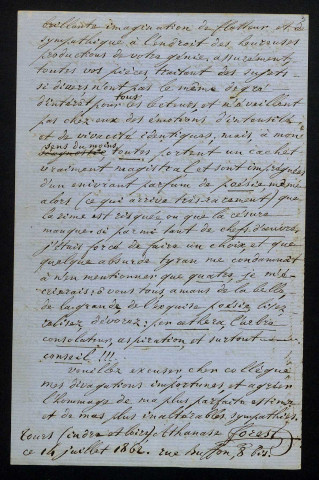 vaillante imagination de flatteur et de
sympathique à l'endroit des heureuses
productions de votre génie. assurément,
toutes vos pièces, traitant des sujets
si divers n'ont pas le même degré
d'intérêt pour tous les lecteurs et n'éveillent
pas chez eux des émotions d'intensité
et de vivacité identiques, mais à mon
sens du moins toutes portent un cachet
vraiment magistral et sont imprégnées
d'un enivrant parfum de poésie même
alors (ce qui arrive très rarement) que
la rime est risquée ou que la césure
manque. si parmi tant de chefs d'œuvre
j'étais forcé de faire un choix, et que
quelque absurde tyran me condamnât
à n'en mentionner que quatre, je m'é
crierais: ô vous tous amans de la belle,
de la grande de l'exquise poésie, lisez
relisez dévorez: penthéra, l'arbre
consolateur, aspiration et surtout
conseil!!!
Veuillez excuser cher collègue
mes divagations importunes, et agréer
l'hommage de ma plus parfaite estime
et de mes plus inaltérables sympathies.
Tours (indre et loire) Athanase Forest
ce 14 juillet 1862. rue buffon, 8 bis.